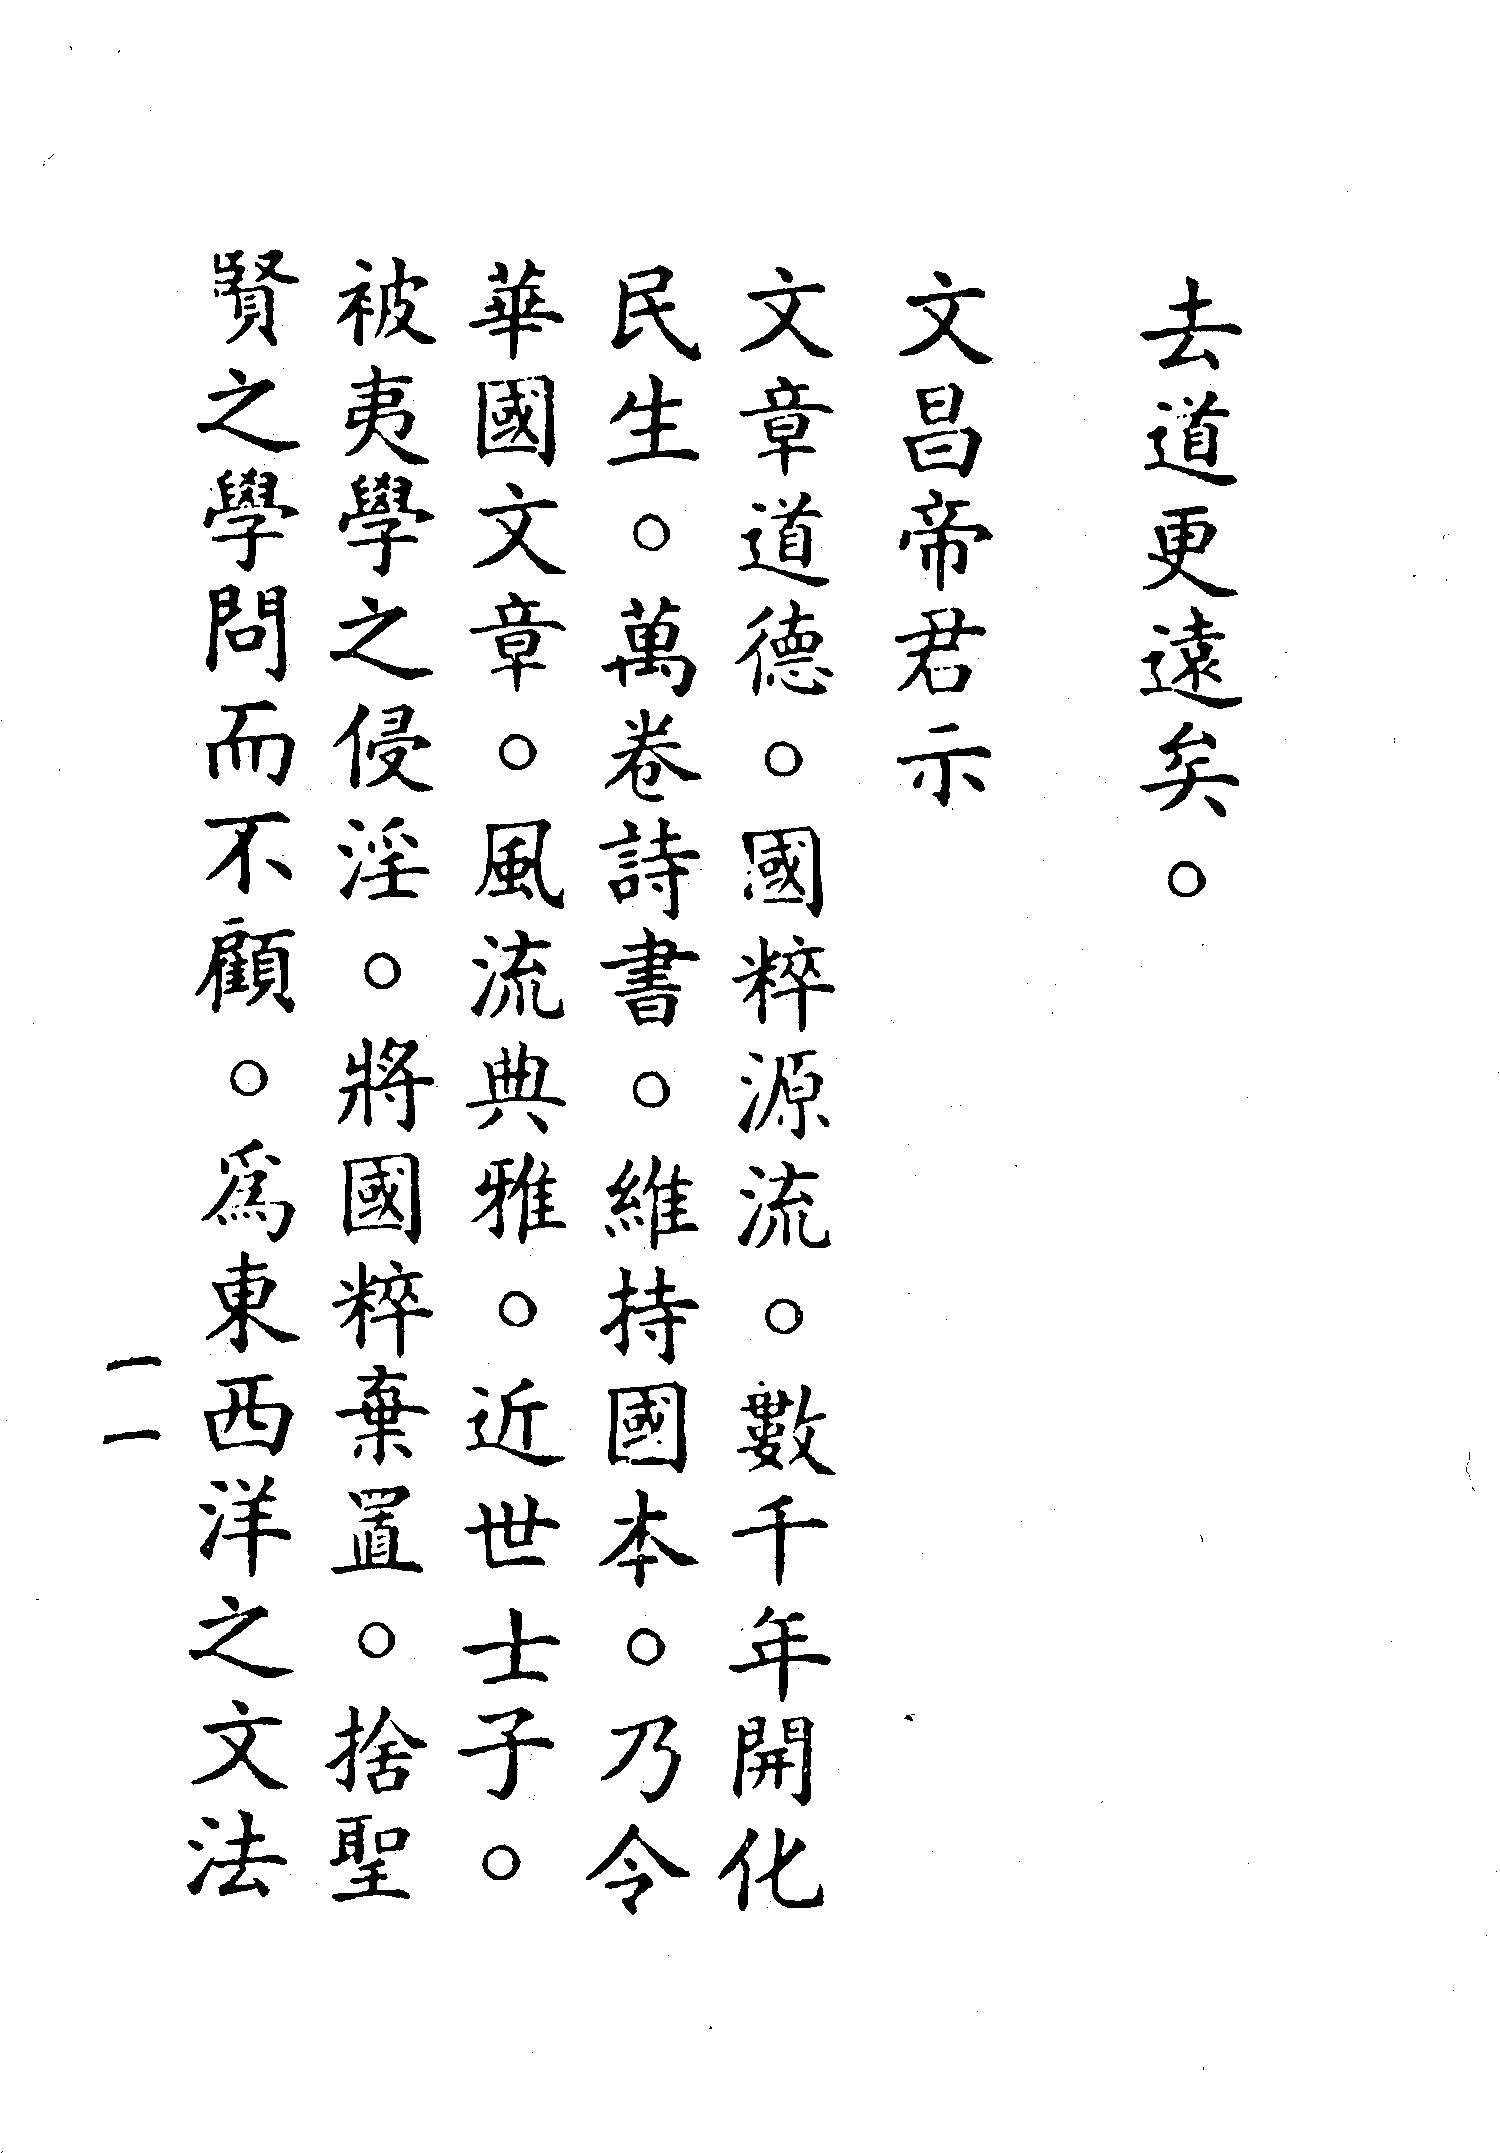 去道更遠矣。
文昌帝君示
文章道德。國粹源流。數千年開化
民生。萬卷詩書。維持國本。乃令
華國文章。風流典雅。近世士子。
被夷學之侵淫。將國粹棄置。捨聖
賢之學問而不顧。爲東西洋之文法
一一